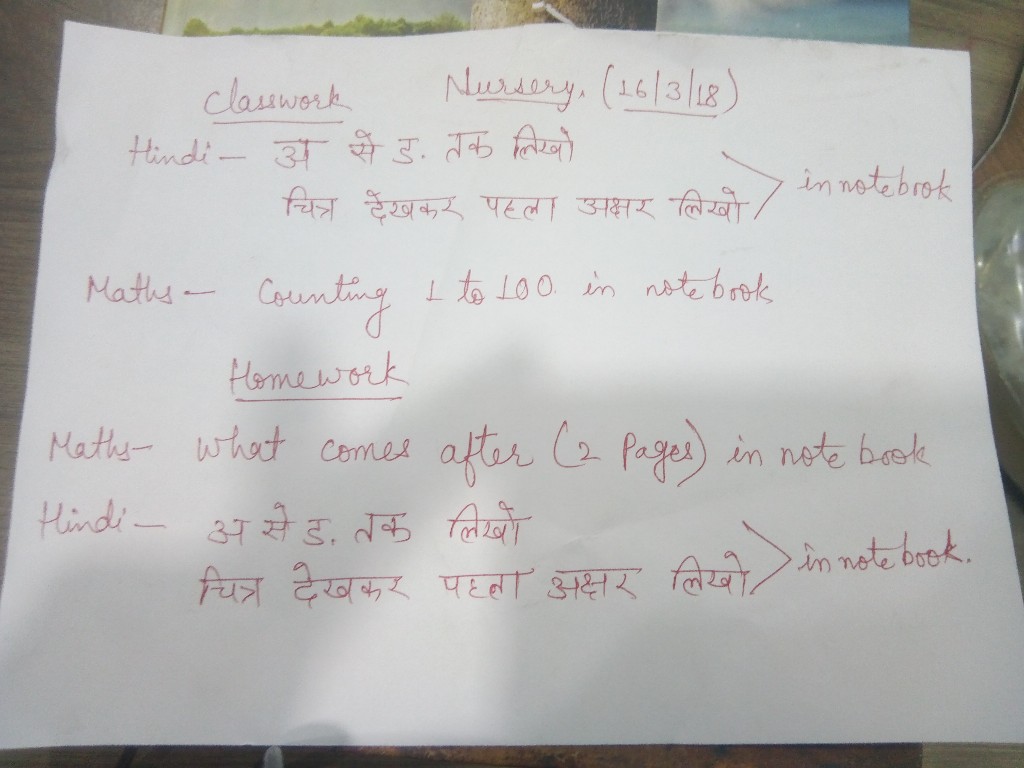 Classwork Nursery. (16/3/18)
Hindi - अ से ङ. तक लिखो
चित्र देखकर पहला अक्षर लिखो > in notebook
Maths - Counting 1 to 100. in notebook
Homework
Maths - What comes after (2 Pages) in note book
Hindi - अ से ङ. तक लिखो
चित्र देखकर पहला अक्षर लिखो > in note book.